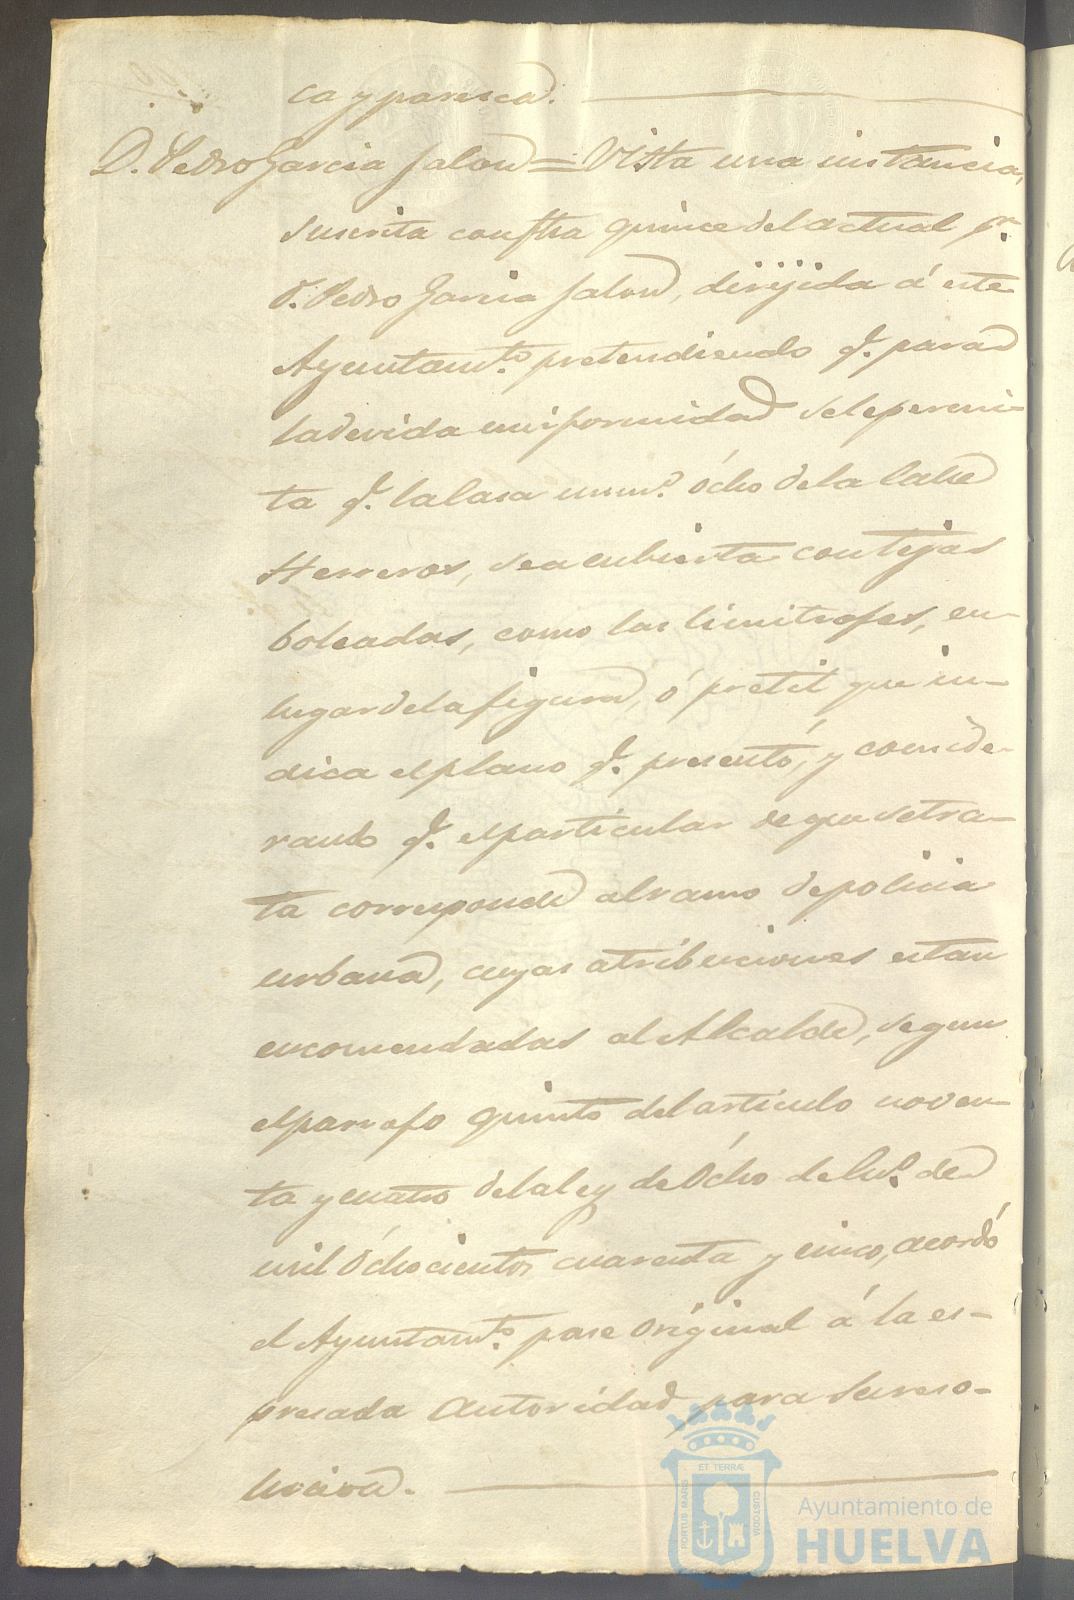 ca y paresca.
D. Pedro Garcia Jalon = Vista una instancia,
suscrita con fha quince del actual pr.
D. Pedro Garcia Jalon, dirijida á este
Ayuntamto. pretendiendo q. para
la devida uniformidad se le permi-
ta q. la casa numo. ócho de la Calle
Herreros, sea cubierta con tejas
boleadas, como las limitrofes, en
lugar de la figura, ó pretil que in-
dica el plano q. presentó, y conside-
rando q. el particular de que se tra-
ta corresponde al ramo de policia
urbana, cuyas atribuciones estan
encomendadas al Alcalde, segun
el parrafo quinto del articulo noven-
ta y cuatro de la ley de Ócho de de
mil Óchocientos cuarenta y cinco, acordó
el Ayuntamto. pase Original á la es-
presada Autoridad para su reso-
lucion.
PORTUS MARIS ET TERRÆ CUSTODIA
Ayuntamiento de
HUELVA